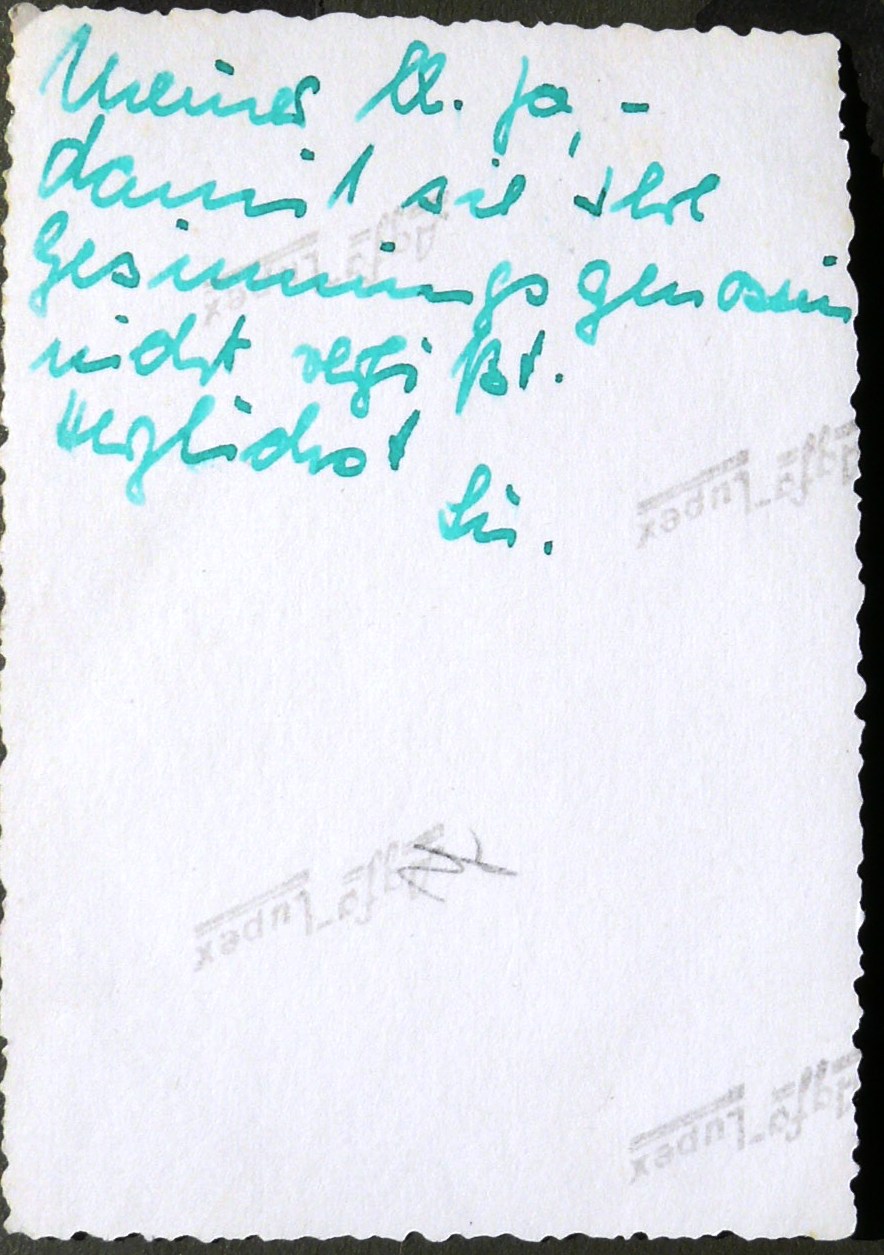 Meiner ll. Ja,-
damit sie ihre
Gesinnungsgenossin
nicht vergißt.
Herzlichst
Lis.
Agfa-Lupex
Agfa-Lupex
Agfa-Lupex
Agfa-Lupex